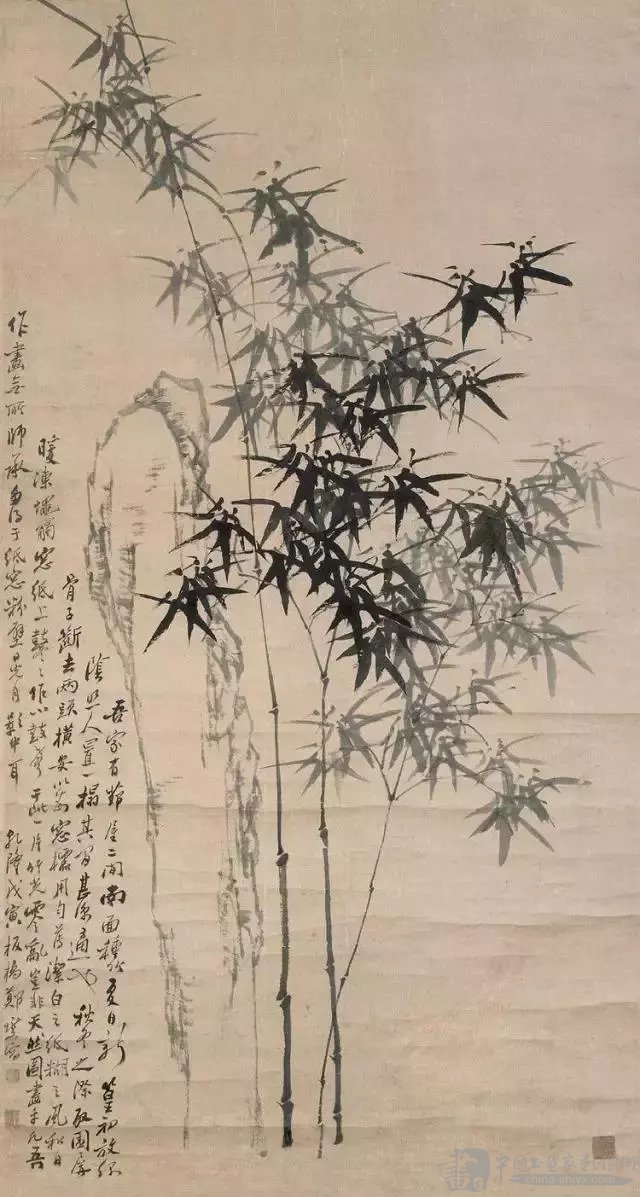 吾家有茆屋二間南面種竹夏日新篁初放綠
陰照人置一榻其間甚涼適也秋冬之際取圍屏
骨子斷去兩頭橫安以爲窗櫺用勻薄潔白之紙糊之風和日
暖凍蠅觸窗紙上鼕〻作小鼓聲于此一片竹光零亂豈非天然圖畫乎凡吾
作畫無所師承多得于紙窗粉壁日光月影中耳 乾隆戊寅板橋鄭燮